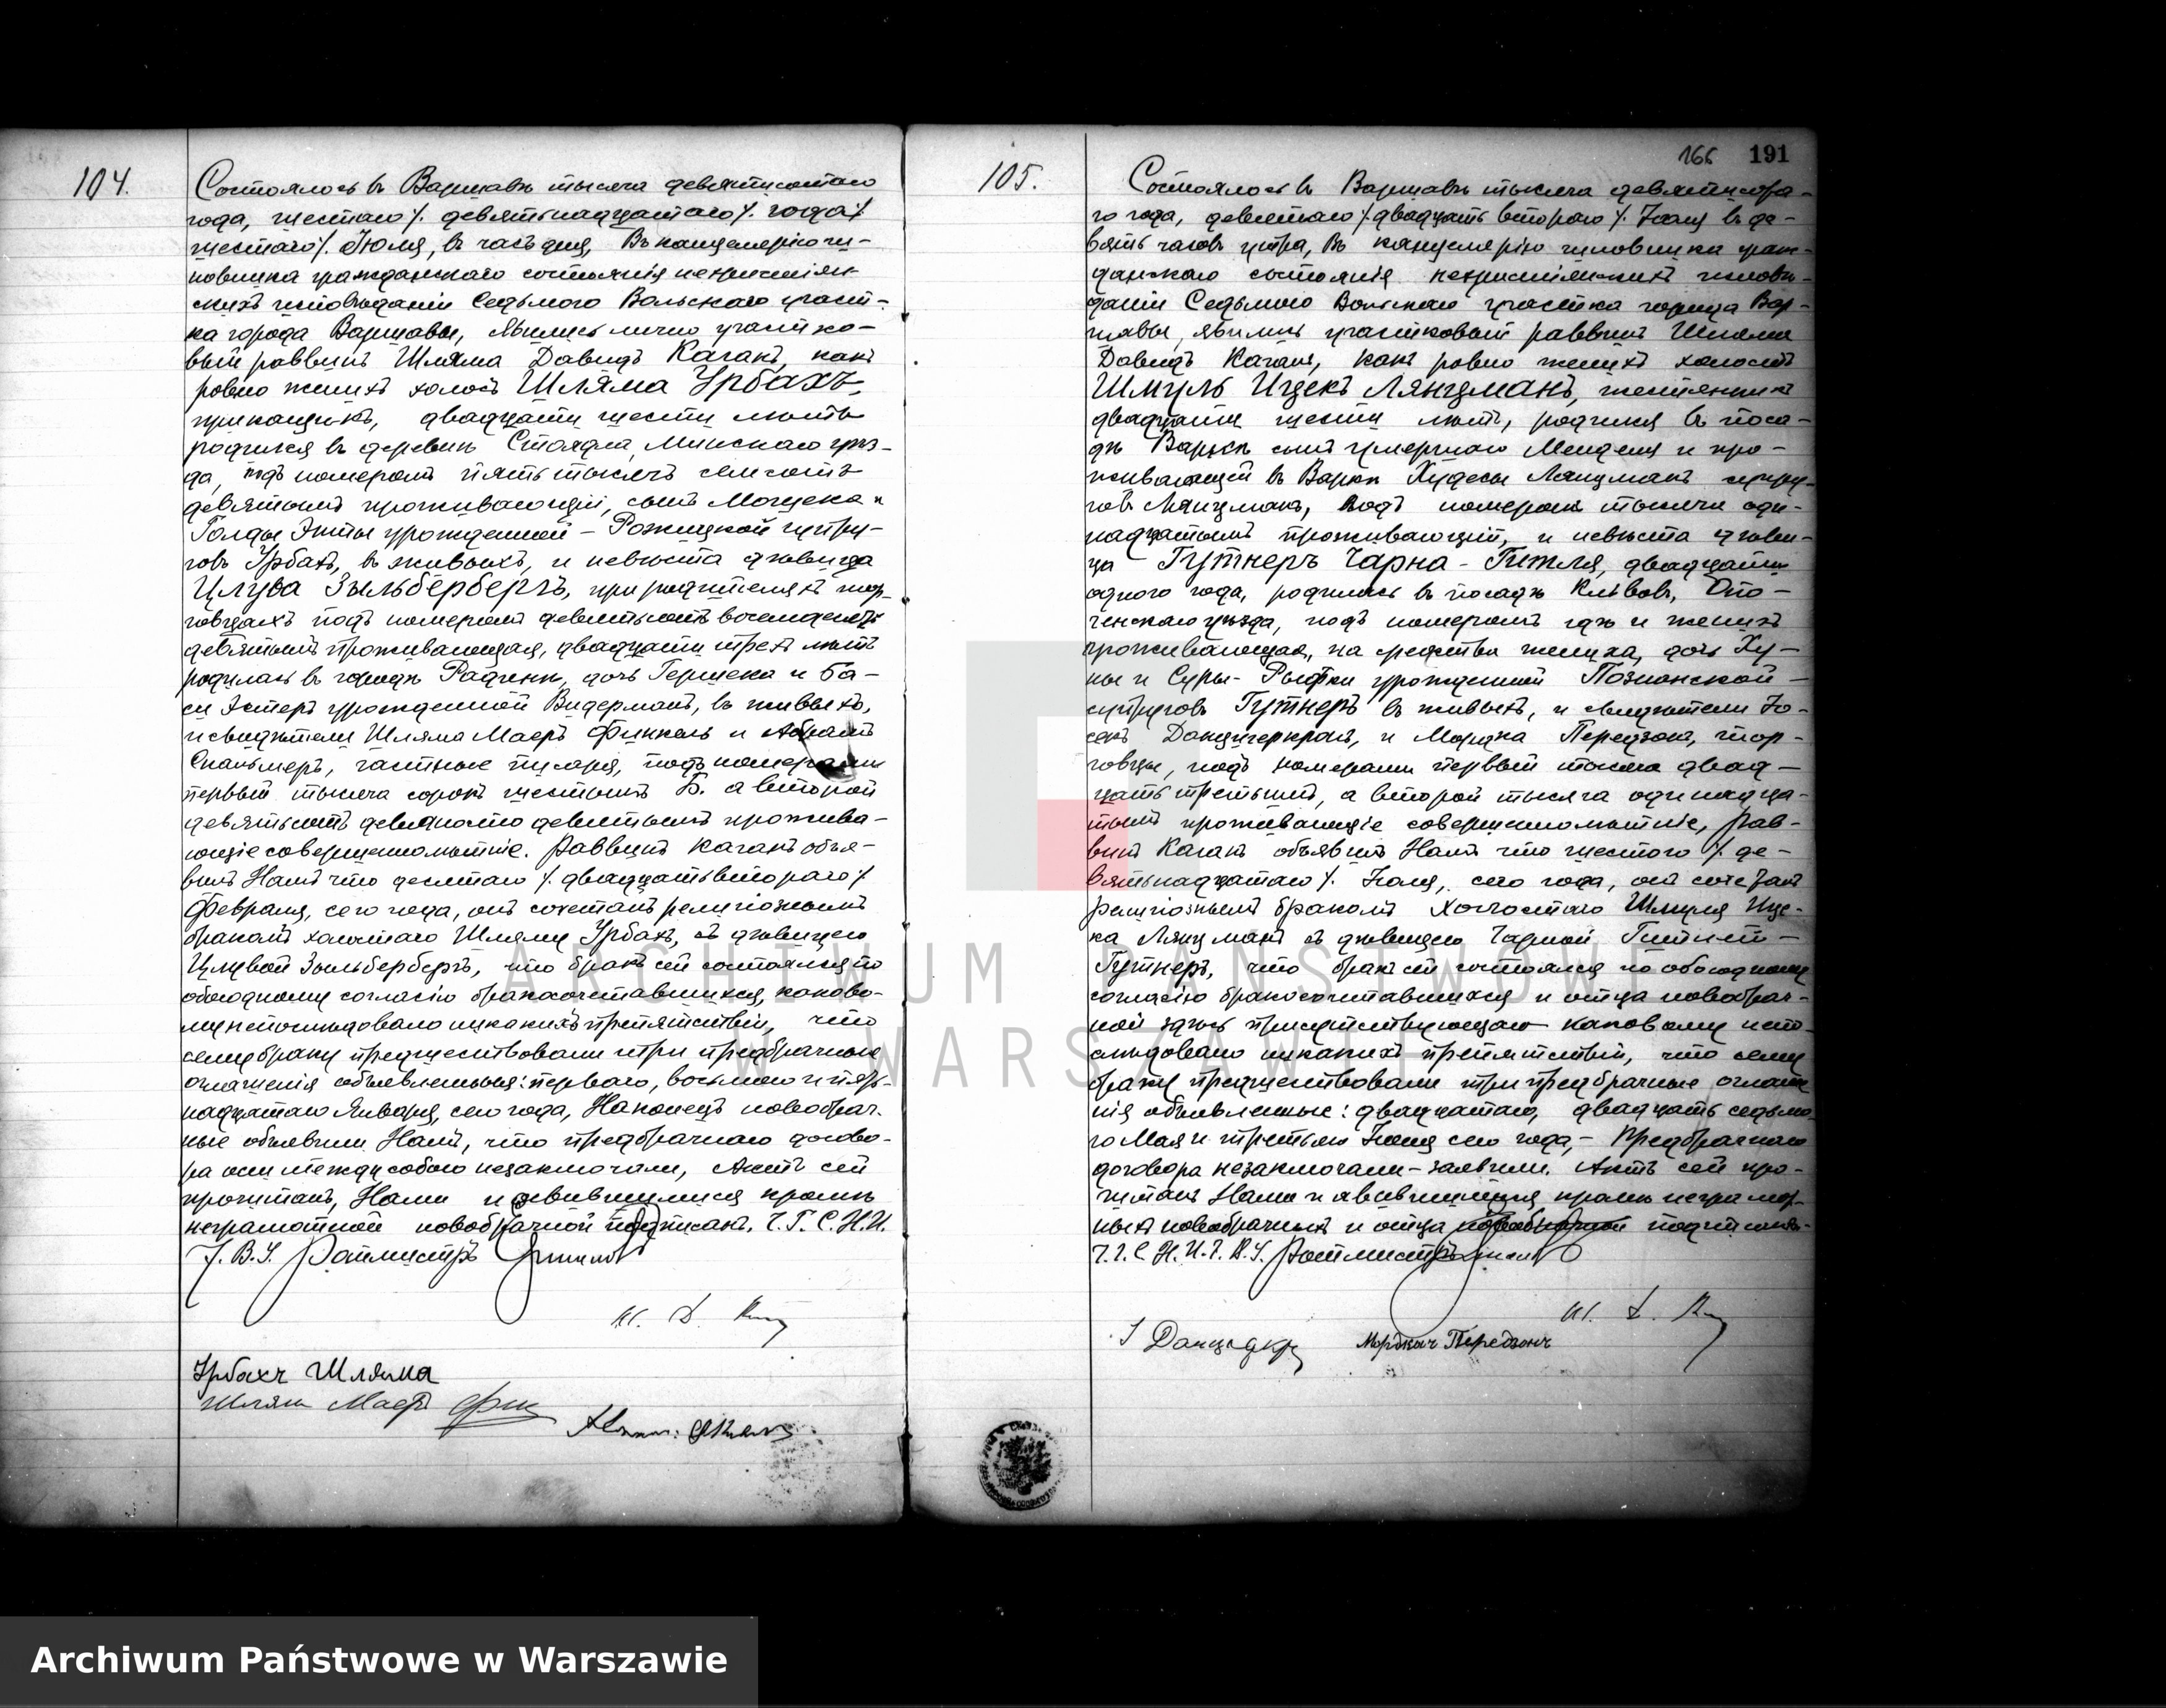 166 191
104.
Состоялось въ Варшавѣ тысяча девятисотаго
года, шестаго /. девятьнадцатаго /. года /
шестаго /. Іюля, въ часъ дня, Въ канцелярію чи-
новника гражданскаго состоянія нехристіян-
скихъ исповѣданій Седьмого Вольскаго участ-
ка города Варшавы, явились лично участко-
вый раввинъ Шляма Давидъ Каганъ, какъ
ровно женихъ холостъ Шляма Урбахъ,
прикащикъ, двадцати шести лѣтъ
родился въ деревнѣ Стоядла, Минскаго уѣз-
да, подъ номеромъ пять тысячъ семьсотъ
девятымъ проживающій, сынъ Мошека и
Голды Энты урожденной – Рожицкой супру-
говъ Урбахъ, въ живыхъ, и невѣста дѣвица
Цлува Зыльбербергъ, при родителяхъ тор-
говцахъ подъ номеромъ девятьсотъ восемдесятъ
девятымъ проживающая, двадцати трехъ лѣтъ
родилась въ городѣ Радинѣ, дочь Гершека и Ба-
си Эстеръ урожденной Видерманъ, въ живыхъ,
и свидѣтели Шляма Маеръ Финкель и Абрамъ
частные писаря, подъ номерами
первый тысяча сорокъ шестымъ Б. а второй
девятьсотъ девяносто девятымъ прожива-
ющіе совершеннолѣтніе. Раввинъ Каганъ объя-
вилъ Намъ что десятаго /. двадцать втораго /
Февраля, сего года, онъ сочеталъ религіознымъ
бракомъ холостаго Шляму Урбахъ, съ дѣвицею
Цлувой Зыльбербергъ, что бракъ сей состоялся по
обоюдному согласію бракосочетавшихся, каково-
му не послѣдовало никакихъ препятствій, что
сему браку предшествовали три предбрачныя
оглашенія объявленныя: перваго, восьмого и пят-
надцатаго Января, сего года, Наконецъ новобрач-
ные объявили Намъ, что предбрачнаго догово-
ра они между собою незаключали, Актъ сей
прочитанъ, Нами и явившимися кромѣ
неграмотной новобрачной подписанъ. Ч. Г. С. Н. И.
7. В. У. Ротмистръ
Урбахъ Шляма
Шляма Маеръ
105.
Состоялось въ Варшавѣ тысяча девятисота-
го года, девятаго /. двадцать втораго /. Іюля въ де-
вять часовъ утра, Въ канцелярію чиновника граж-
данскаго состоянія нехристіянскихъ исповѣ-
даній Седьмого Вольскаго участка города Вар-
шавы, явились участковый раввинъ Шляма
Давидъ Каганъ, какъ ровно женихъ холостъ
Шмуль Ицекъ Лянцманъ, жестянникъ
двадцати шести лѣтъ, родился въ поса-
дѣ Варкѣ сынъ умершаго Менделя и про-
живающей въ Варкѣ Худесы Лянцманъ супру-
говъ Лянцманъ, подъ номеромъ тысяча оди-
надцатымъ проживающій, и невѣста дѣви-
ца Гутнеръ Чарна - Гитля, двадцати
одного года, родилась въ посадѣ Кльвовъ, Опо-
ченскаго уѣзда, подъ номеромъ гдѣ и женихъ
проживающая, на средства жениха, дочь Ху-
ны и Суры- Рыфки урожденной Познанской –
супруговъ Гутнеръ въ живыхъ, и свидѣтели Іо-
секъ Данцигеркронъ, и Мордка Передзонъ, тор-
говцы, подъ номерами первый тысяча двад-
цать третьимъ, а второй тысяча одинадца-
тымъ проживающіе совершеннолѣтніе, Рав-
винъ Каганъ объявилъ Намъ что шестого /. де-
вятьнадцатаго /. Іюля, сего года, онъ сочеталъ
религіознымъ бракомъ холостаго Шмуля Ице-
ка Лянцманъ съ дѣвицею Чарной Гитлей –
Гутнеръ, что бракъ сей состоялся по обоюдному
согласію бракосочетавшихся и отца новобрач-
ной здѣсь присутствующаго каковому непо-
слѣдовало никакихъ препятствій, что сему
браку предшествовали три предбрачные оглаше-
нія объявленные: двадцатаго, двадцать седьмо-
го Мая и третьяго Іюня сего года, – Предбрачнаго
договора незаключали – заявили. Актъ сей про-
читанъ Нами и явившимися кромѣ неграмот-
ныхъ новобрачныхъ и отца новобрачной подписанъ.
Ч. Г. С. Н. И. 7. В. У. Ротмистръ
Мордка Передзонъ
ARCHIWUM PAŃSTWOWE
W WARSZAWIE
Archiwum Państwowe w Warszawie